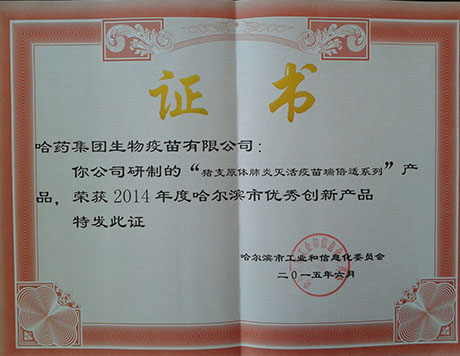 证书
哈药集团生物疫苗有限公司：
你公司研制的“猪支原体肺炎灭活疫苗瑞倍适系列”产
品，荣获2014年度哈尔滨市优秀创新产品
特发此证
哈尔滨市工业和信息化委员会
二〇一五年六月